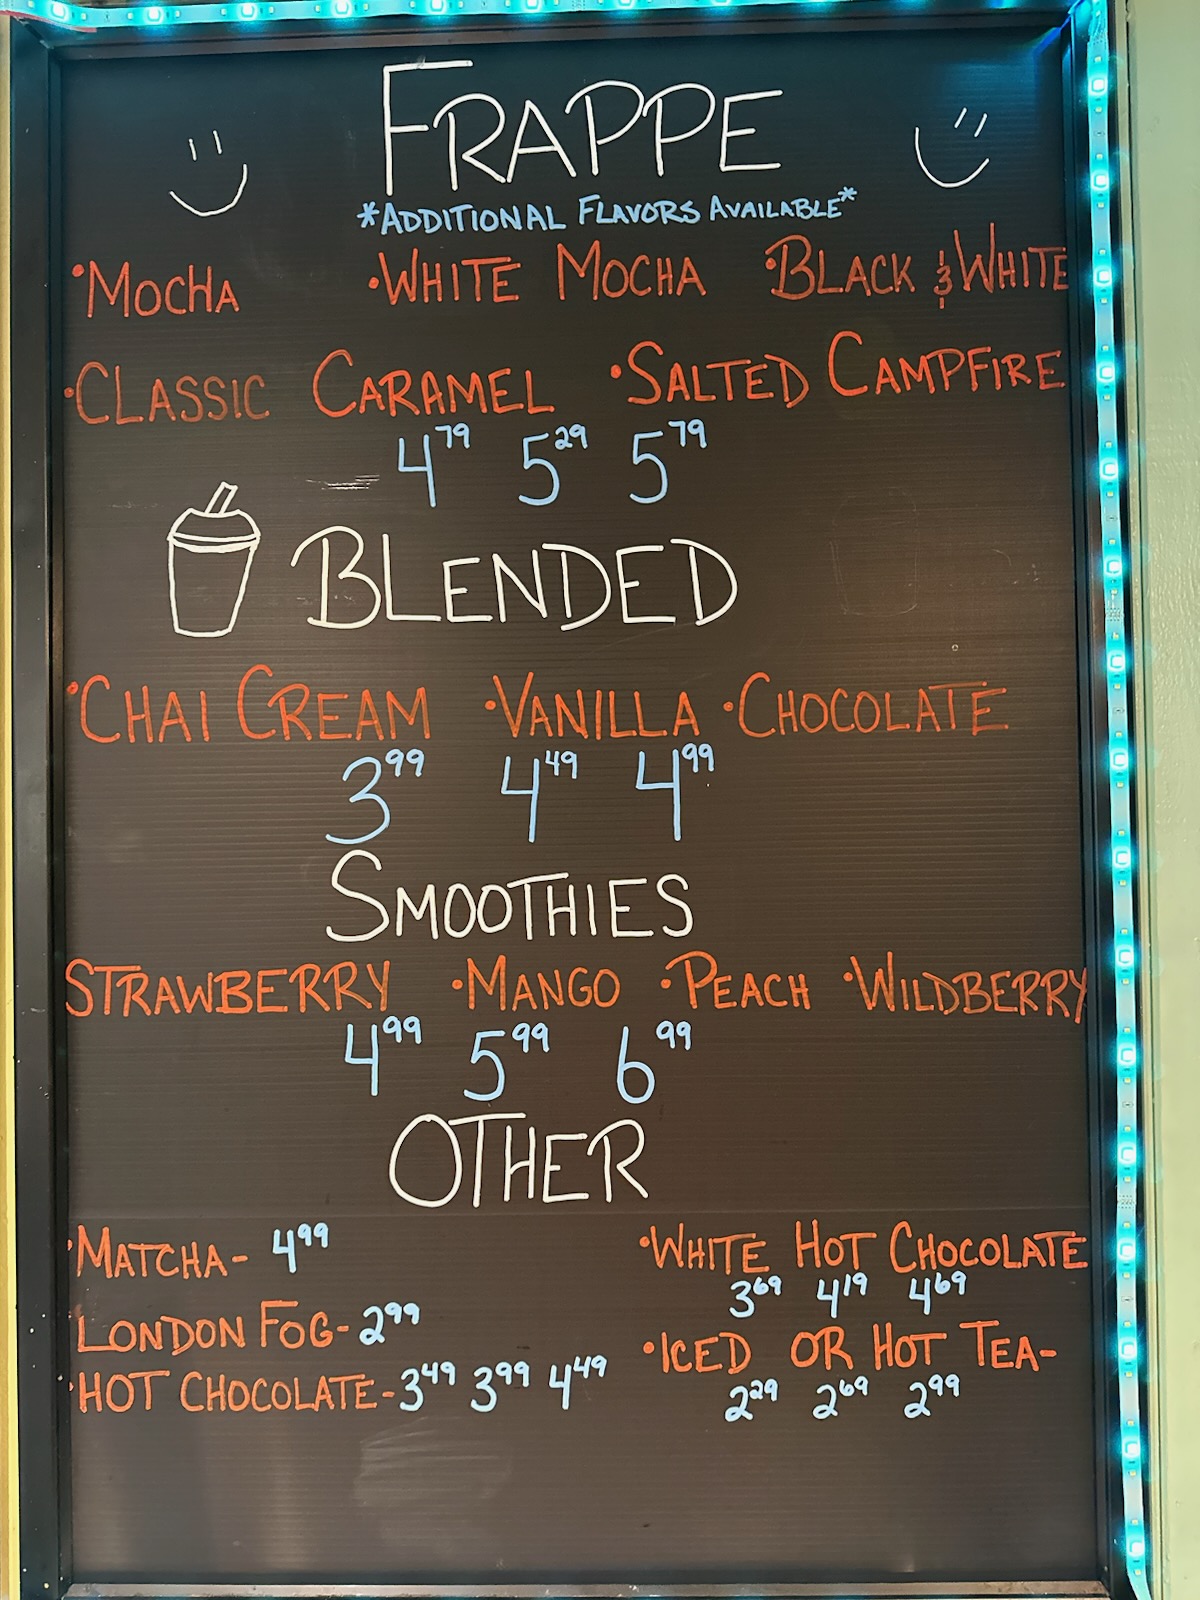 FRAPPE
*ADDITIONAL FLAVORS AVAILABLE*
•MOCHA •WHITE MOCHA •BLACK & WHITE
•CLASSIC CARAMEL •SALTED CAMPFIRE
4 79 5 29 5 79
BLENDED
•CHAI CREAM •VANILLA •CHOCOLATE
3 99 4 49 4 99
SMOOTHIES
STRAWBERRY •MANGO •PEACH •WILDBERRY
4 99 5 99 6 99
OTHER
•MATCHA- 4 99
•WHITE HOT CHOCOLATE
3 69 4 19 4 69
•LONDON FOG- 2 99
•ICED OR HOT TEA-
2 29 2 69 2 99
•HOT CHOCOLATE- 3 49 3 99 4 49